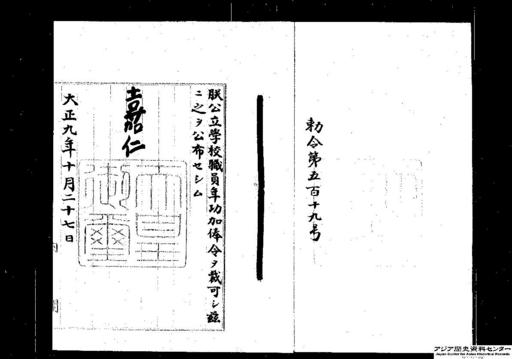 勅令第五百十九号
朕公立學校職員年功加俸令ヲ裁可シ茲
ニ之ヲ公布セシム
嘉仁
天皇御璽
大正九年十月二十七日
内閣
アジア歴史資料センター
Japan Center for Asian Historical Records